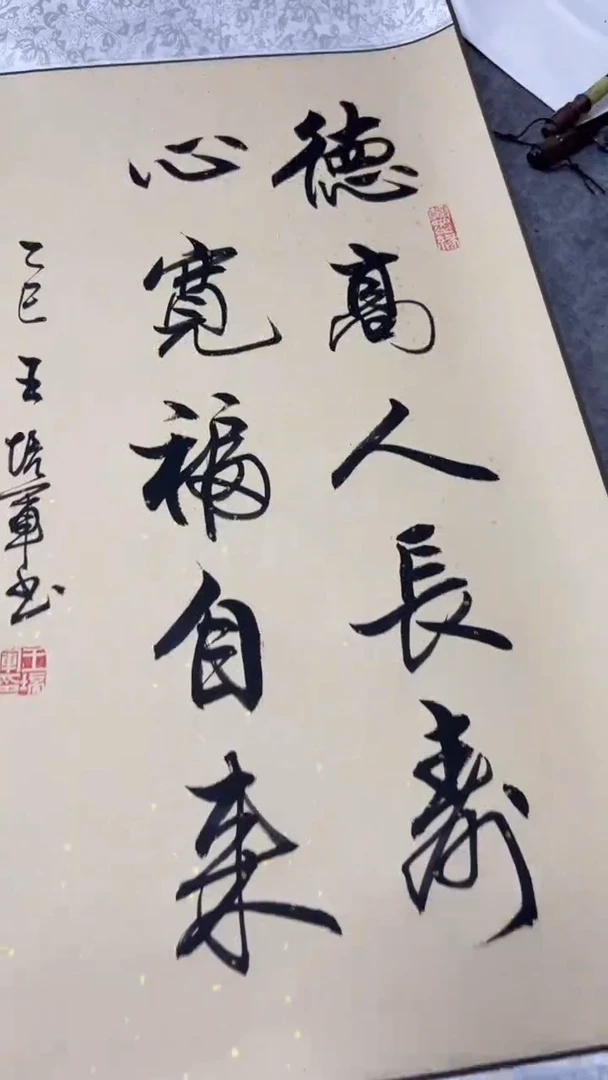 德高人長壽
心寬福自来
乙巳王培軍书